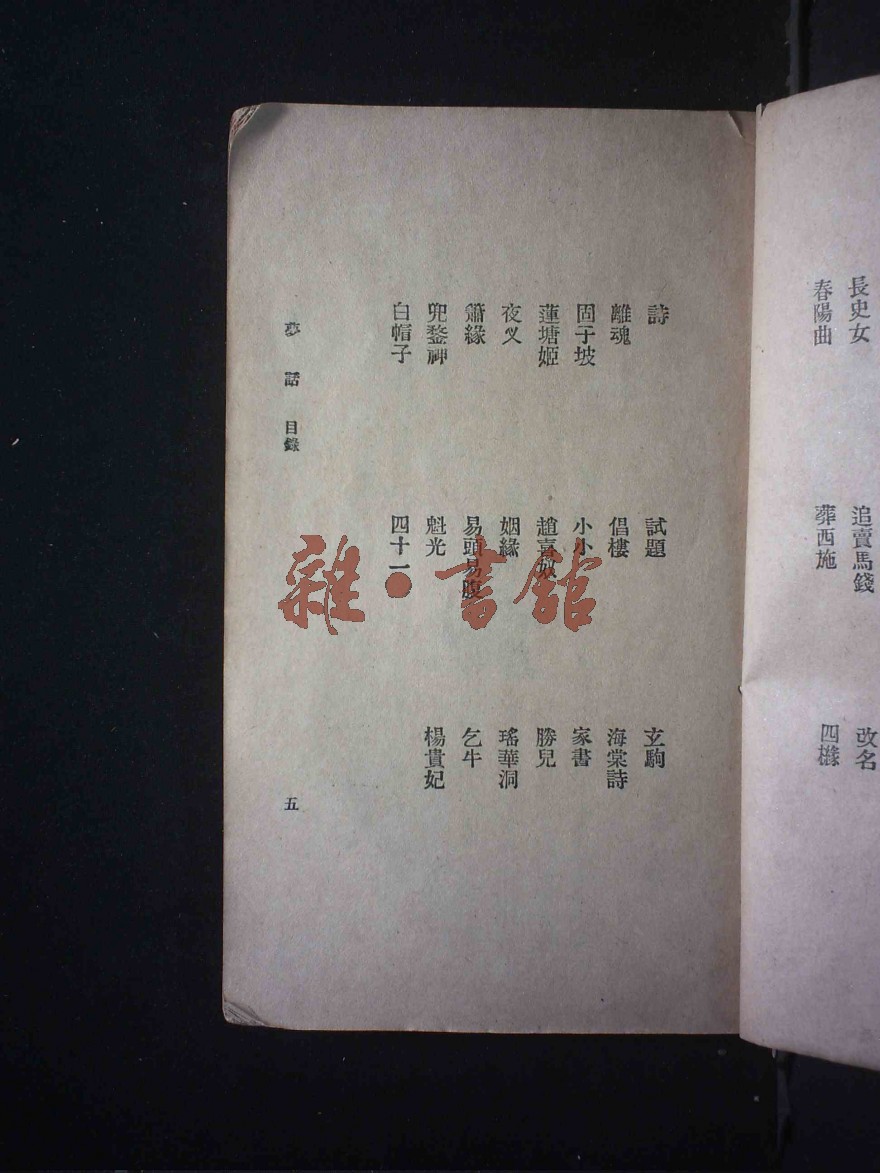 長史女
追賣馬錢
改名
春陽曲
葬西施
四
詩
試題
玄駒
離魂
倡樓
海棠詩
固子坡
小小
家書
蓮塘姬
趙喜奴
勝兒
夜叉
姻緣
瑤華洞
簫緣
易頭易腹
乞牛
兜鍪神
魁光
楊貴妃
白帽子
四十一
夢話 目錄
五
雜·書館